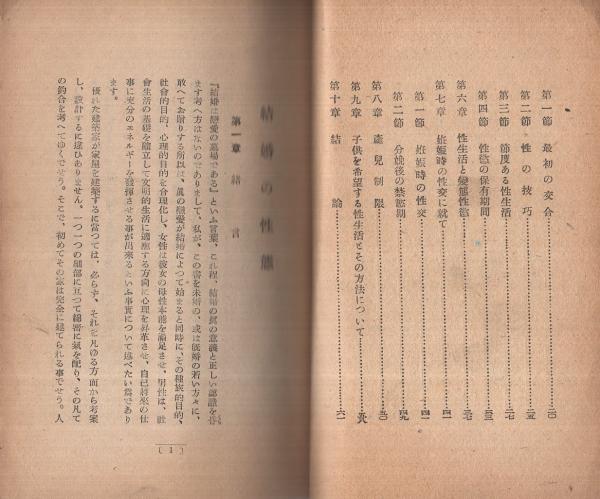 第一節 最初の交合
第二節 性の技巧
第三節 節度ある性生活
第四節 性慾の保有期間
第六章 性生活と變態性慾
第七章 姙娠時の性交に就て
第一節 姙娠時の性交
第二節 分娩後の禁慾期
第八章 產兒制限
第九章 子供を希望する性生活とその方法について
第十章 結論
結婚の性態
第一章 緖言
『結婚は戀愛の墓場である』といふ言葉、これ程、結婚の眞の意義と正しい認識を
ます考へ方はないのでありまして、私が、この書を未婚の、或は旣婚の若い方々に、
敢へてお贈りする所以は、眞の戀愛が結婚によつて始まると同時に、その種族的目的、
社會的目的、心理的目的を合理化し、女性は彼女の母性本能を滿足させ、男性は、社
會生活の基礎を確立して文明的生活に適應する方向に心理を昇華させ、自己將來の仕
事に充分のエネルギーを發揮させる事が出來るといふ事實について述べたい爲であり
ます。
優れた建築家が家屋を建築するに當つては、必らず、それを凡ゆる方面から考案
し、設計するに違ひありません。一つ一つの細部に亙つて綿密に氣を配り、その凡て
の釣合を考へてゆくでせう。そこで、初めてその家は完全に建てられる事でせう。人
〔1〕